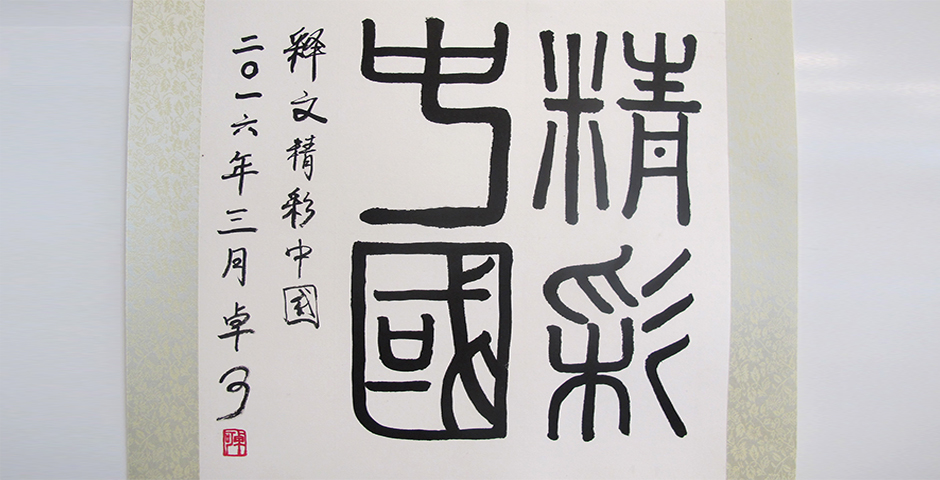 精彩
中國
释文精彩中国
二〇一六年三月卓